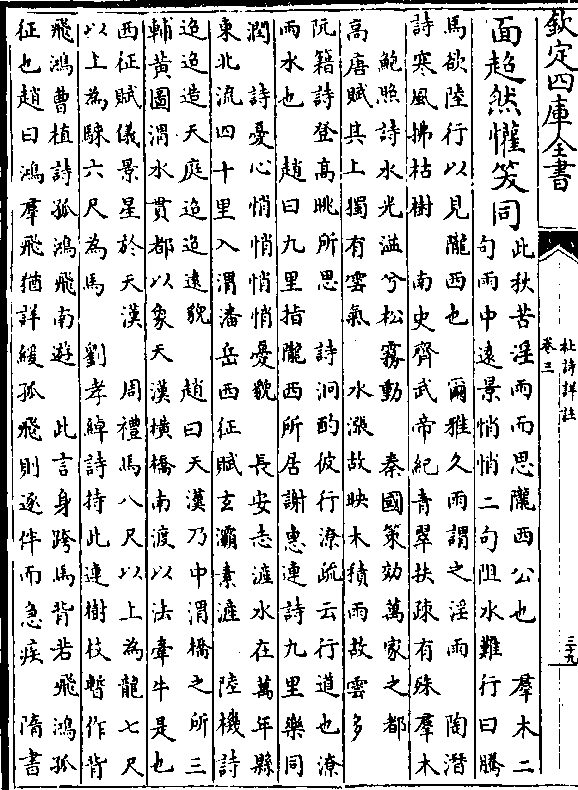 欽定四庫全書
杜詩詳註
卷三
三十九
面超然懽笑同
此秋苦淫雨而思隴西公也　羣木二
句雨中遠景悄悄二句阻水難行曰騰
馬欲陸行以見隴西也　爾雅久雨謂之淫雨　陶潛
詩寒風拂枯樹　南史齊武帝紀青翠扶疎有殊羣木
鮑照詩水光溢兮松霧動　秦國策効萬家之都
高唐賦其上獨有雲氣　水漲故映木積雨故雲多
阮籍詩登高眺所思　詩泂酌彼行潦疏云行道也潦
雨水也　趙曰九里指隴西所居謝惠連詩九里樂同
潤　詩憂心悄悄悄悄憂貌　長安志滻水在萬年縣
東北流四十里入渭潘岳西征賦玄灞素滻　陸機詩
迢迢造天庭迢迢遠貌　趙曰天漢乃中渭橋之所三
輔黃圖渭水貫都以象天漢橫橋南渡以法牽牛是也
西征賦儀景星於天漢　周禮馬八尺以上為龍七尺
以上為騋六尺為馬　劉孝綽詩持此連樹枝暫作背
飛鴻曹植詩孤鴻飛南遊　此言身跨馬背若飛鴻孤
征也趙曰鴻羣飛猶詳緩孤飛則逐伴而急疾　隋書